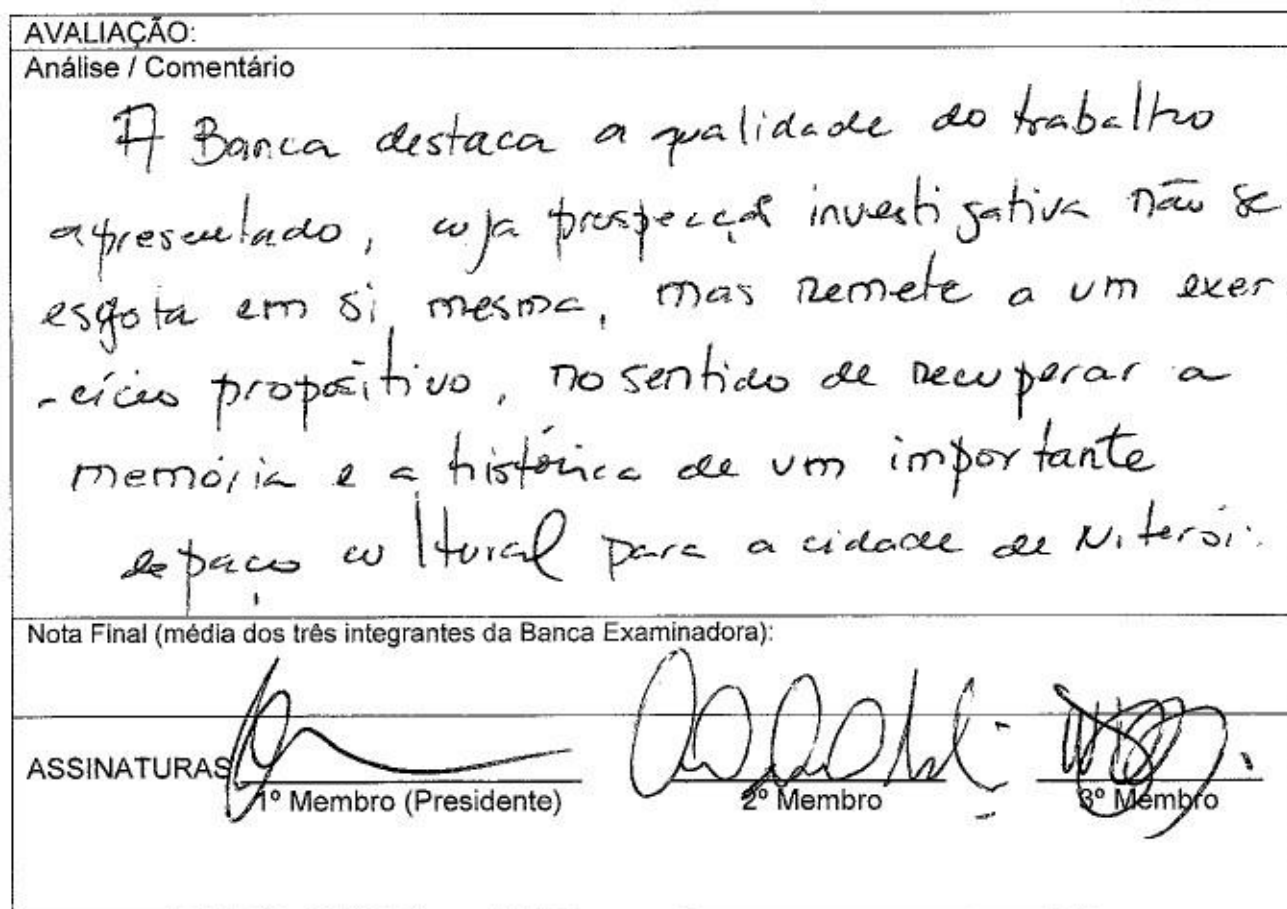 AVALIAÇÃO:
Análise / Comentário
A Banca destaca a qualidade do trabalho
apresentado, cuja prospecção investigativa não se
esgota em si mesma, mas remete a um exer
-cício propositivo, no sentido de recuperar a
memória e a histórica de um importante
espaço cultural para a cidade de Niterói.
Nota Final (média dos três integrantes da Banca Examinadora):
ASSINATURAS
1º Membro (Presidente) 2º Membro 3º Membro